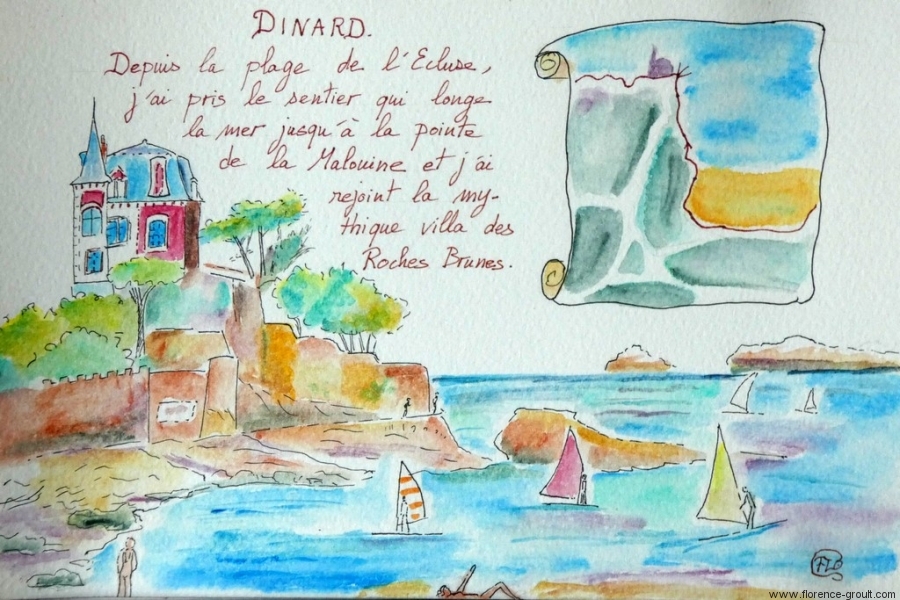 DINARD.
Depuis la plage de l'Ecluse,
j'ai pris le sentier qui longe
la mer jusqu'à la pointe
de la Malouine et j'ai
rejoint la my-
thique villa des
Roches Brunes.
FLO
www.florence-groult.com